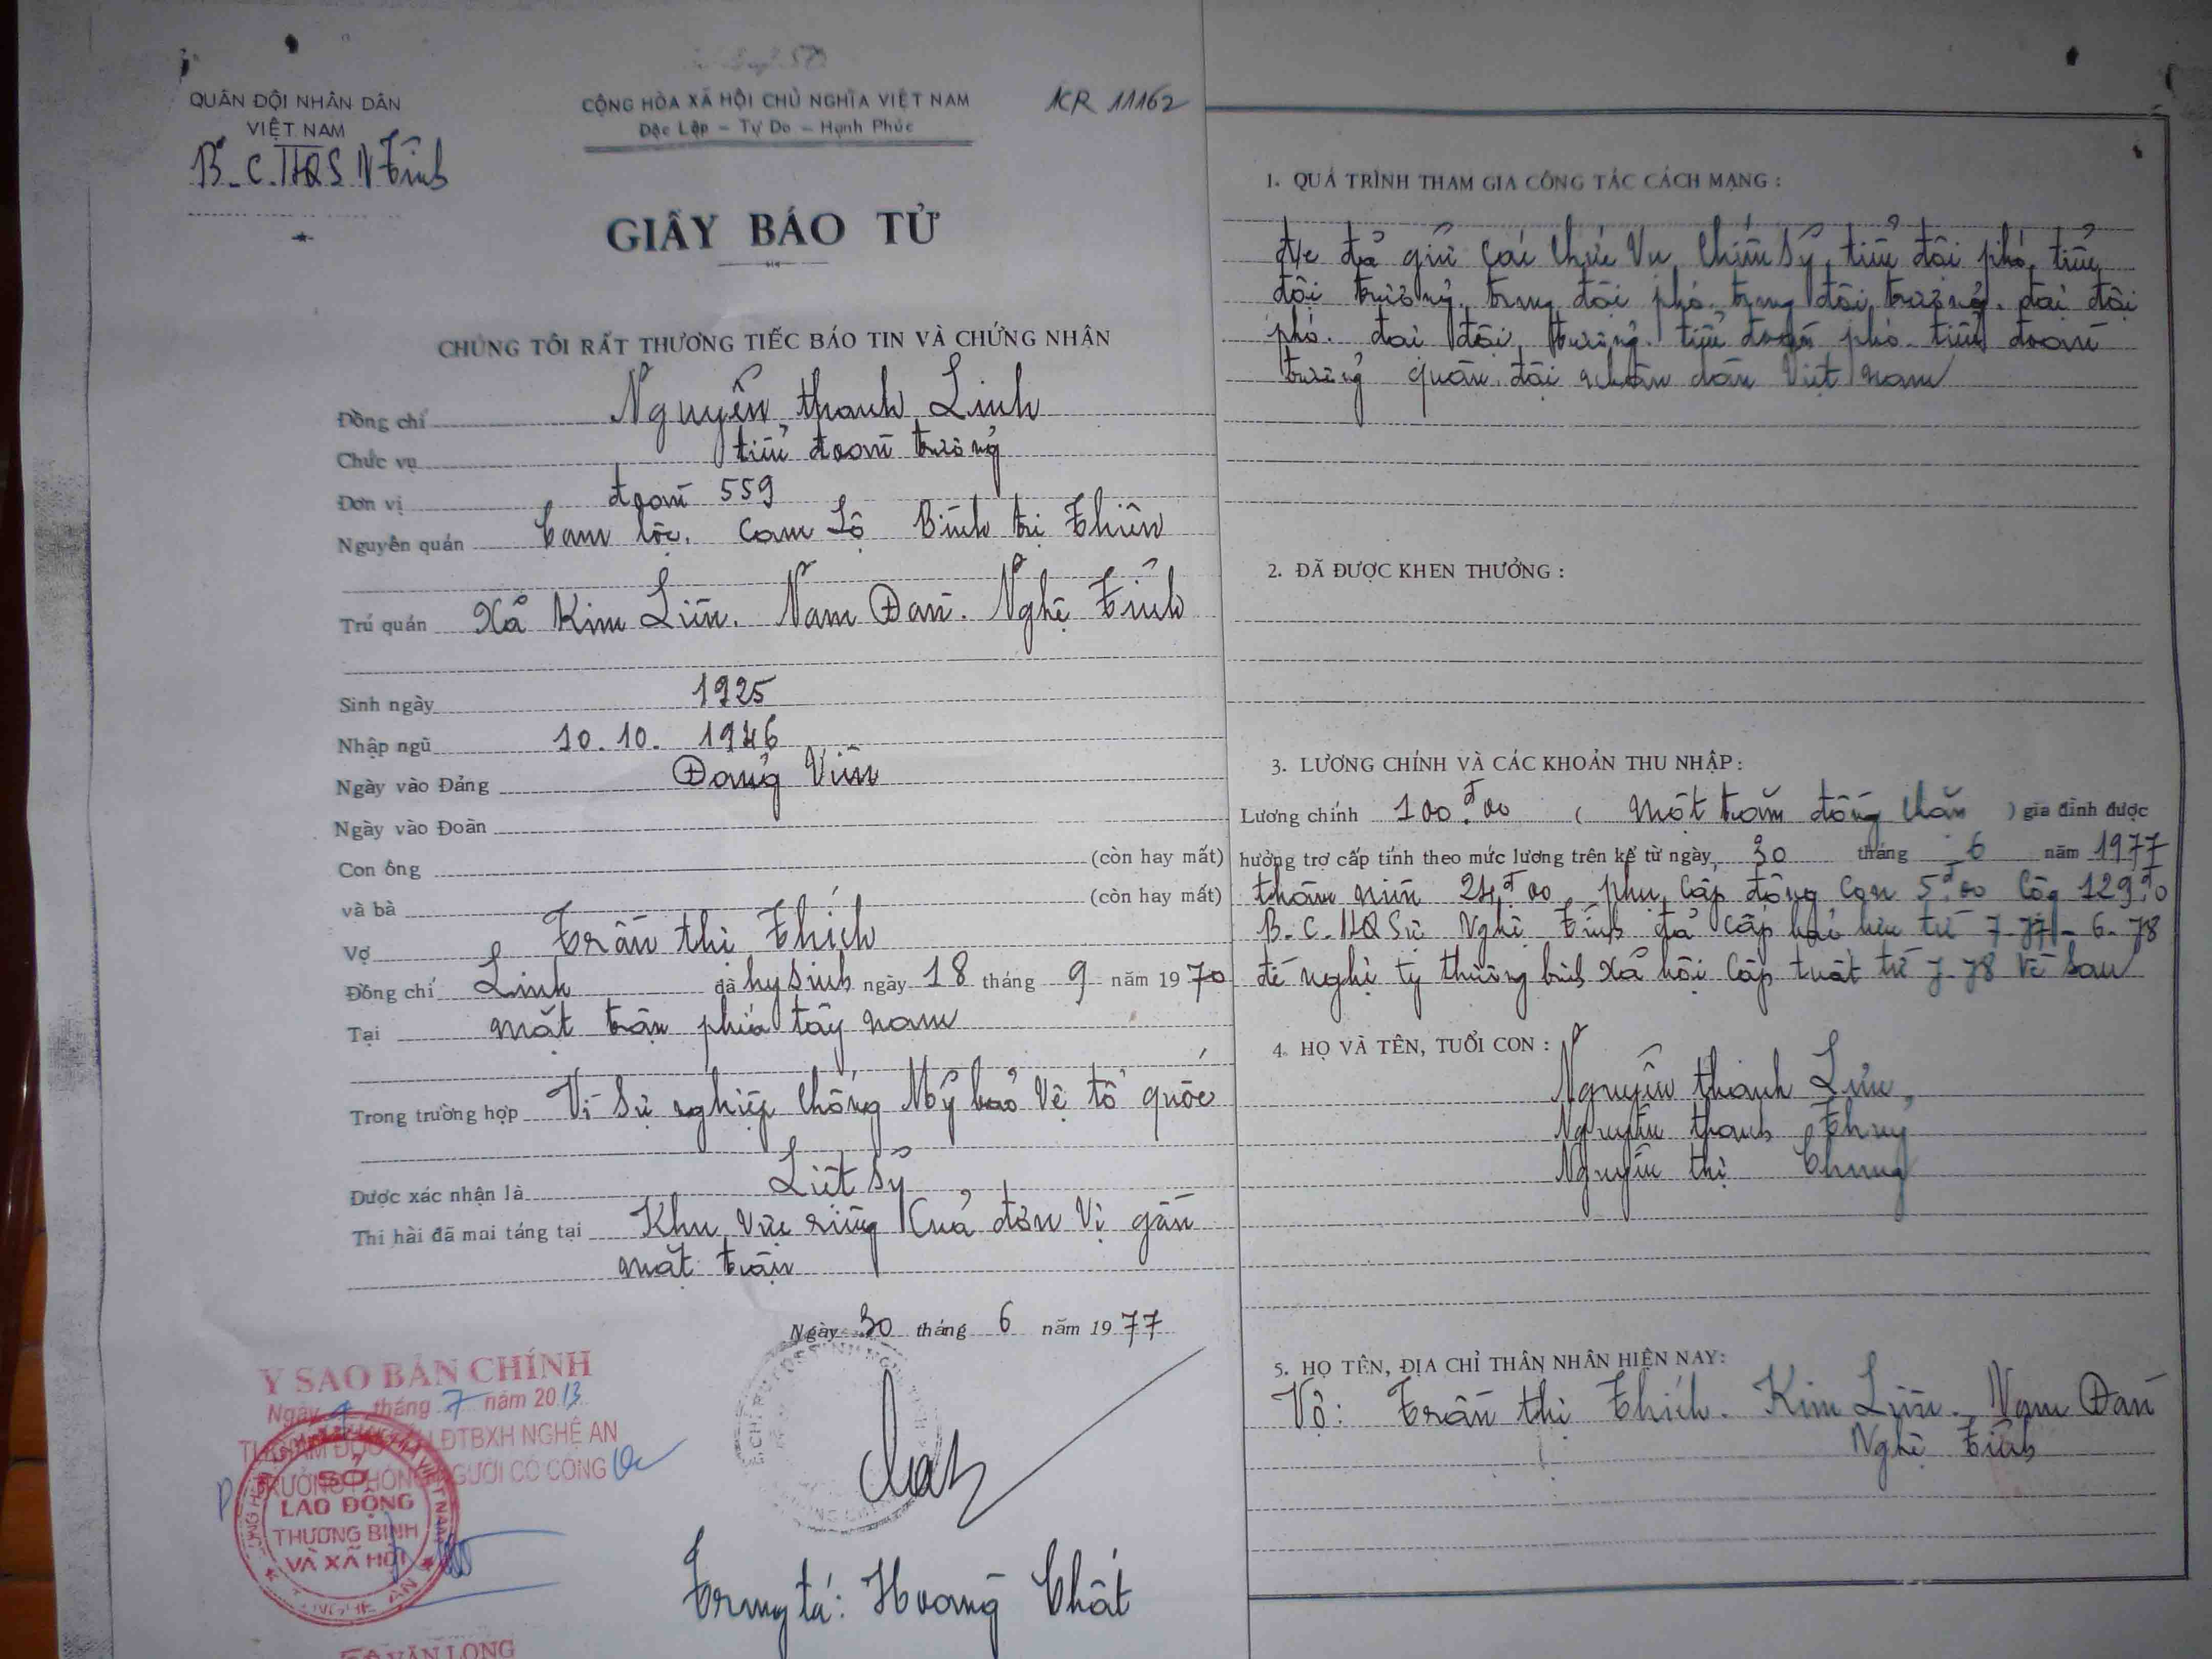 QUÂN ĐỘI NHÂN DÂN
VIỆT NAM
B.C.HQS N Tĩnh
CỘNG HÒA XÃ HỘI CHỦ NGHĨA VIỆT NAM
Độc Lập - Tự Do - Hạnh Phúc
KR 11162
GIẤY BÁO TỬ
CHÚNG TÔI RẤT THƯƠNG TIẾC BÁO TIN VÀ CHỨNG NHẬN
Đồng chí Nguyễn thanh Linh
Chức vụ tiểu đoàn trưởng
Đơn vị đoàn 559
Nguyên quán Cam lộc. Cam Lộ Bình trị Thiên
Trú quán Xã Kim Liên. Nam Đàn. Nghệ Tĩnh
Sinh ngày 1925
Nhập ngũ 10.10. 1946
Ngày vào Đảng Đảng Viên
Ngày vào Đoàn
Con ông (còn hay mất)
và bà (còn hay mất)
Vợ Trần thị Thích
Đồng chí Linh đã hy sinh ngày 18 tháng 9 năm 1970
Tại mặt trận phía tây nam
Trong trường hợp Vì Sự nghiệp chống Mỹ bảo Vệ tổ quốc
Được xác nhận là Liệt Sỹ
Thi hài đã mai táng tại Khu Vực riêng Của đơn Vị gần
mặt trận
Ngày 30 tháng 6 năm 1977
Trung tá: Hoàng Chất
Y SAO BẢN CHÍNH
Ngày tháng 7 năm 2013
LĐTBXH NGHỆ AN
TRƯỞNG PHÒNG NGƯỜI CÓ CÔNG
SỞ
LAO ĐỘNG
THƯƠNG BINH
VÀ XÃ HỘI
VĂN LONG
1. QUÁ TRÌNH THAM GIA CÔNG TÁC CÁCH MẠNG :
đ/c đả giữ các chức Vụ Chiến Sỹ, tiểu đội phó, tiểu
đội trưởng, trung đội phó. trung đội trưởng. đại đội
phó. đại đội trưởng. tiểu đoàn phó. tiểu đoàn
trưởng quân đội nhân dân Việt nam
2. ĐÃ ĐƯỢC KHEN THƯỞNG :
3. LƯƠNG CHÍNH VÀ CÁC KHOẢN THU NHẬP :
Lương chính 100đ.00 ( một trăm đồng chẵn ) gia đình được
hưởng trợ cấp tính theo mức lương trên kể từ ngày 30 tháng 6 năm 1977
thâm niên 24đ00, phụ cấp đông con 5đ00 Cộg 129đ0
B.C.HQ Sự Nghệ Tĩnh đả cấp từ 7-77 - 6-78
đề nghị ty thương binh Xả hội Cấp tuất từ 7-78 Về Sau
4. HỌ VÀ TÊN, TUỔI CON :
Nguyễn thanh
Nguyễn thanh Thuỷ
Nguyễn thị Chung
5. HỌ TÊN, ĐỊA CHỈ THÂN NHÂN HIỆN NAY:
Vợ: Trần thị Thích. Kim Liên. Nam Đàn
Nghệ Tĩnh